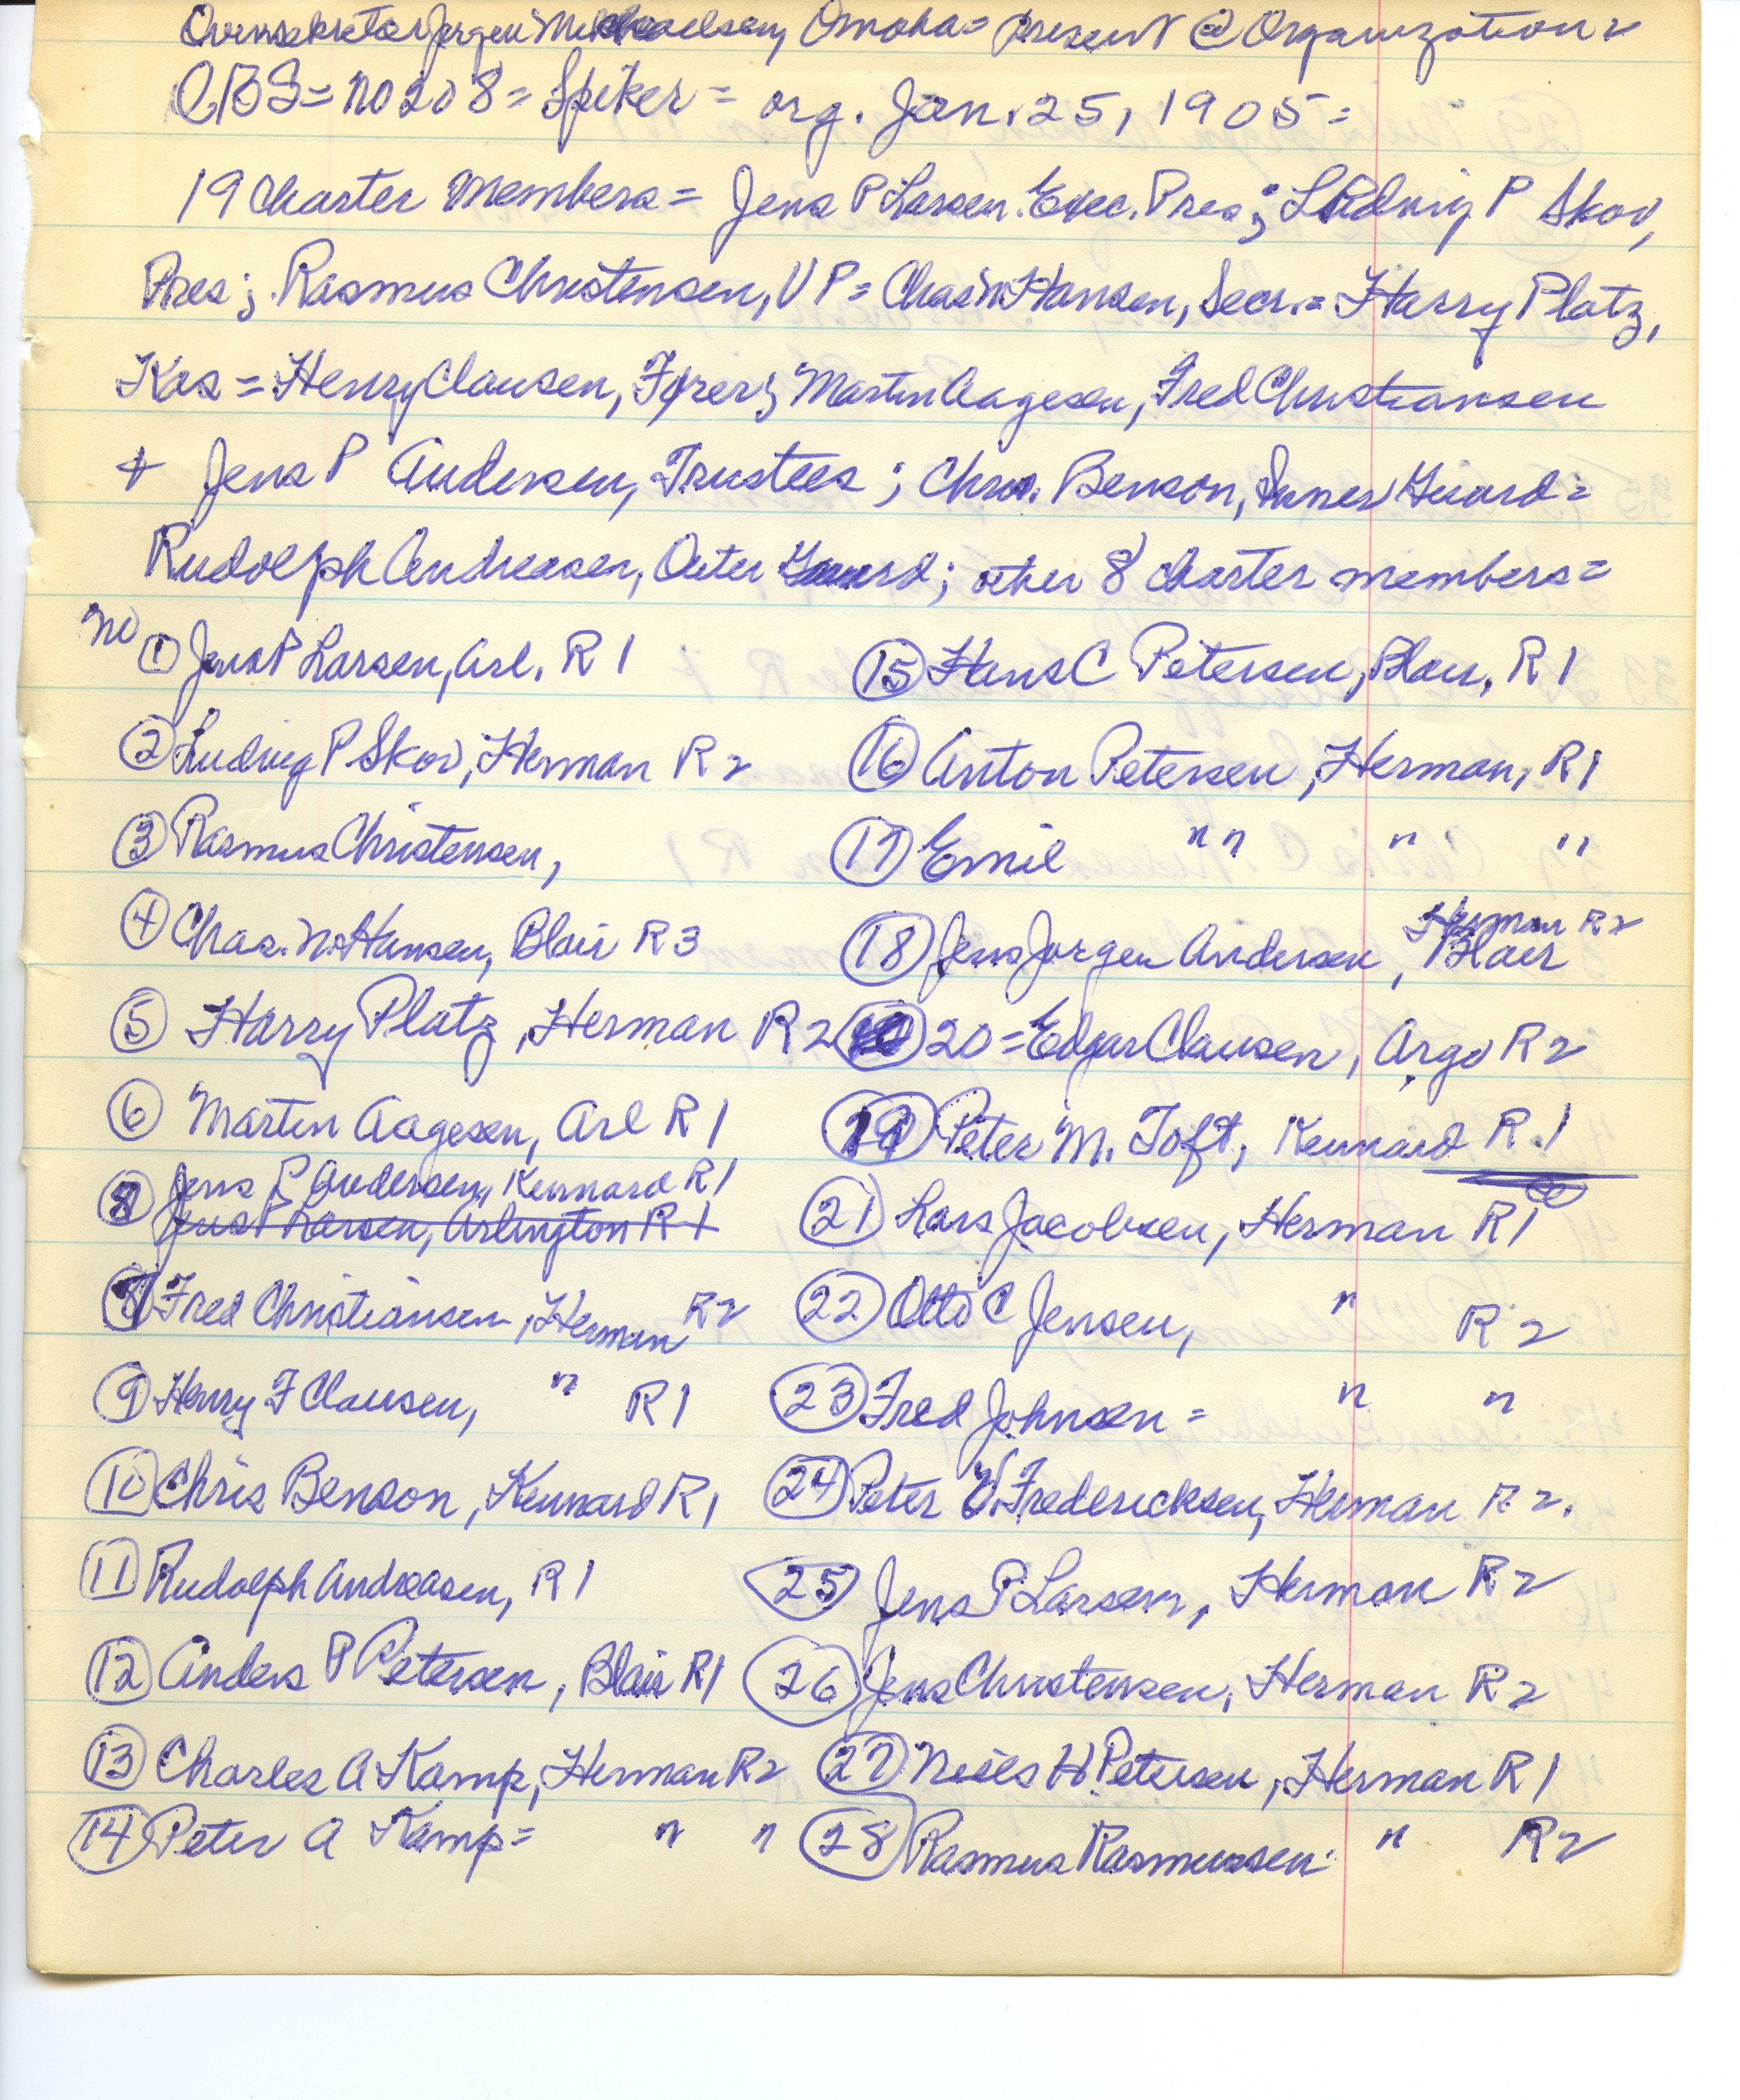 Oversekretar Jorgen Michaelsen, Omaha = Present @ Organization =
DBS = no 208 = Spiker = org. Jan. 25, 1905 =
19 Charter Members = Jens P Larsen. Exec. Pres; Ludwig P Skov,
Pres; Rasmus Christensen, VP = Chas N Hansen, Secr. = Harry Platz,
Kas = Henry Clausen, Forer; Martin Aagesen, Fred Christiansen
+ Jens P Andersen, Trustees; Chris. Benson, Inner Guard =
Rudolph Andreasen, Outer Guard; other 8 charter members =
no ① Jens P Larsen, Arl. R 1
② Ludvig P Skov, Herman R 2
③ Rasmus Christensen,
④ Chas. N. Hansen, Blair R 3
⑤ Harry Platz, Herman R 2
⑥ Martin Aagesen, Arl R 1
⑦ Jens P Andersen, Kennard R 1
Jens P Larsen, Arlington R 1
⑧ Fred Christiansen, Herman R 2
⑨ Henry F Clausen, " R 1
⑩ Chris Benson, Kennard R 1
⑪ Rudolph Andreasen, R 1
⑫ Anders P Petersen, Blair R 1
⑬ Charles A Kamp, Herman R 2
⑭ Peter A Kamp = " "
⑮ Hans C Petersen, Blair, R 1
⑯ Anton Petersen, Herman, R 1
⑰ Emil " " " "
⑱ Jens Jorgen Andersen, Herman R 2
Blair
20 = Edgar Clausen, Argo R 2
⑲ Peter M. Toft, Kennard R. 1
㉑ Lars Jacobsen, Herman R 1
㉒ Otto C Jensen, " R 2
㉓ Fred Johnsen = " "
㉔ Peter V. Fredericksen, Herman R 2.
㉕ Jens P Larsen, Herman R 2
㉖ Jens Christensen, Herman R 2
㉗ Niels H Petersen, Herman R 1
㉘ Rasmus Rasmussen " R 2